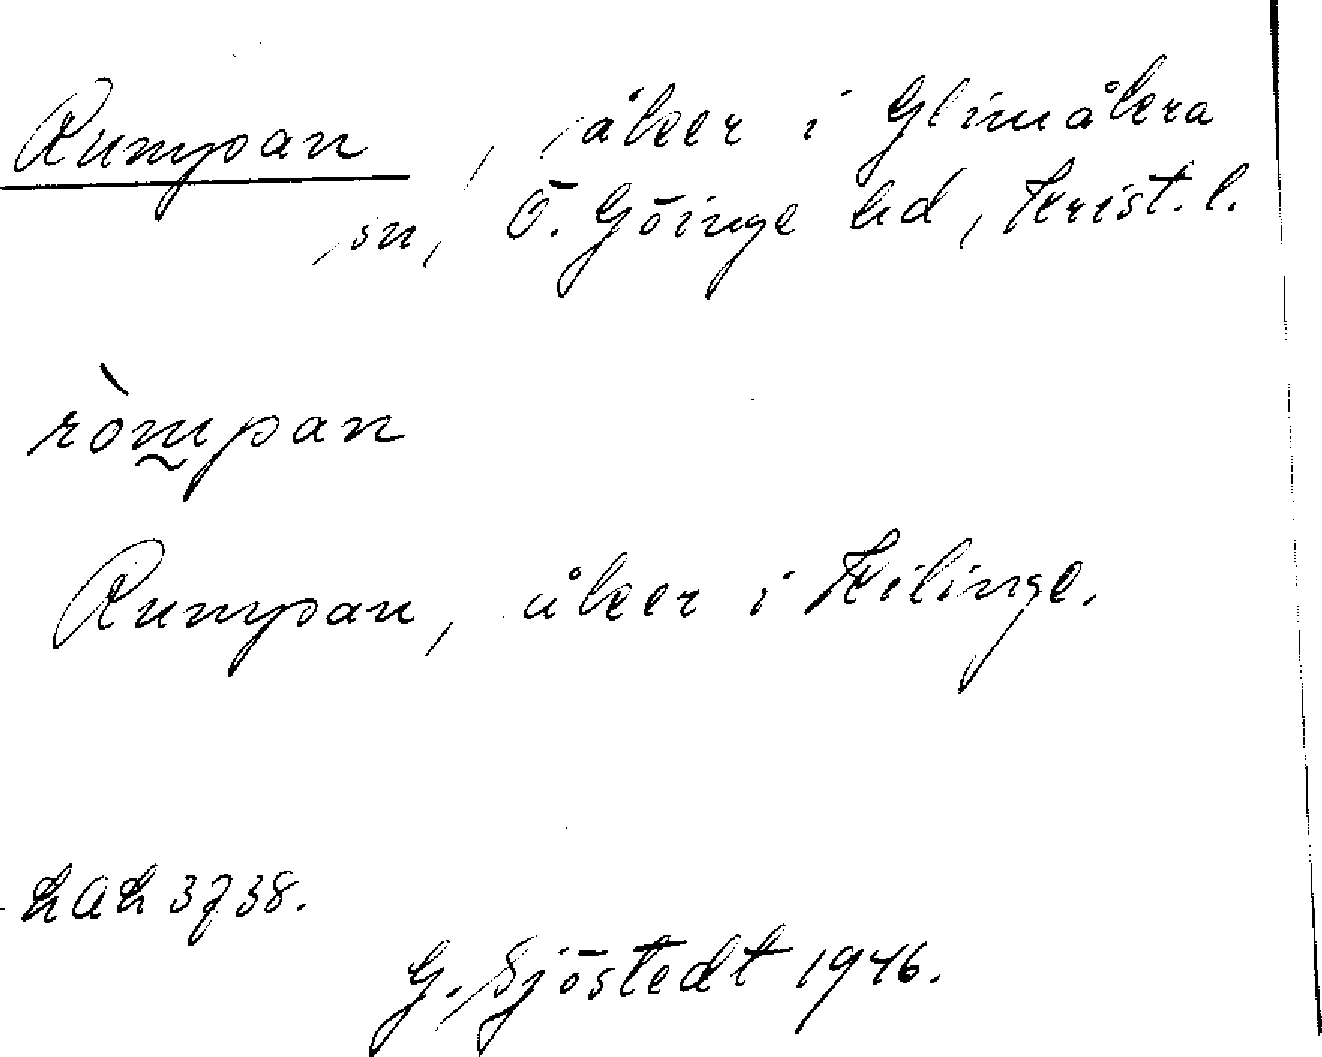 Rumpan, åker i Glimåkra
sn, Ö. Göinge hd, Krist. l.
ròm̰pan
Rumpan, åker i Kilinge.
LAL 3738.
G. Sjöstedt 1946.